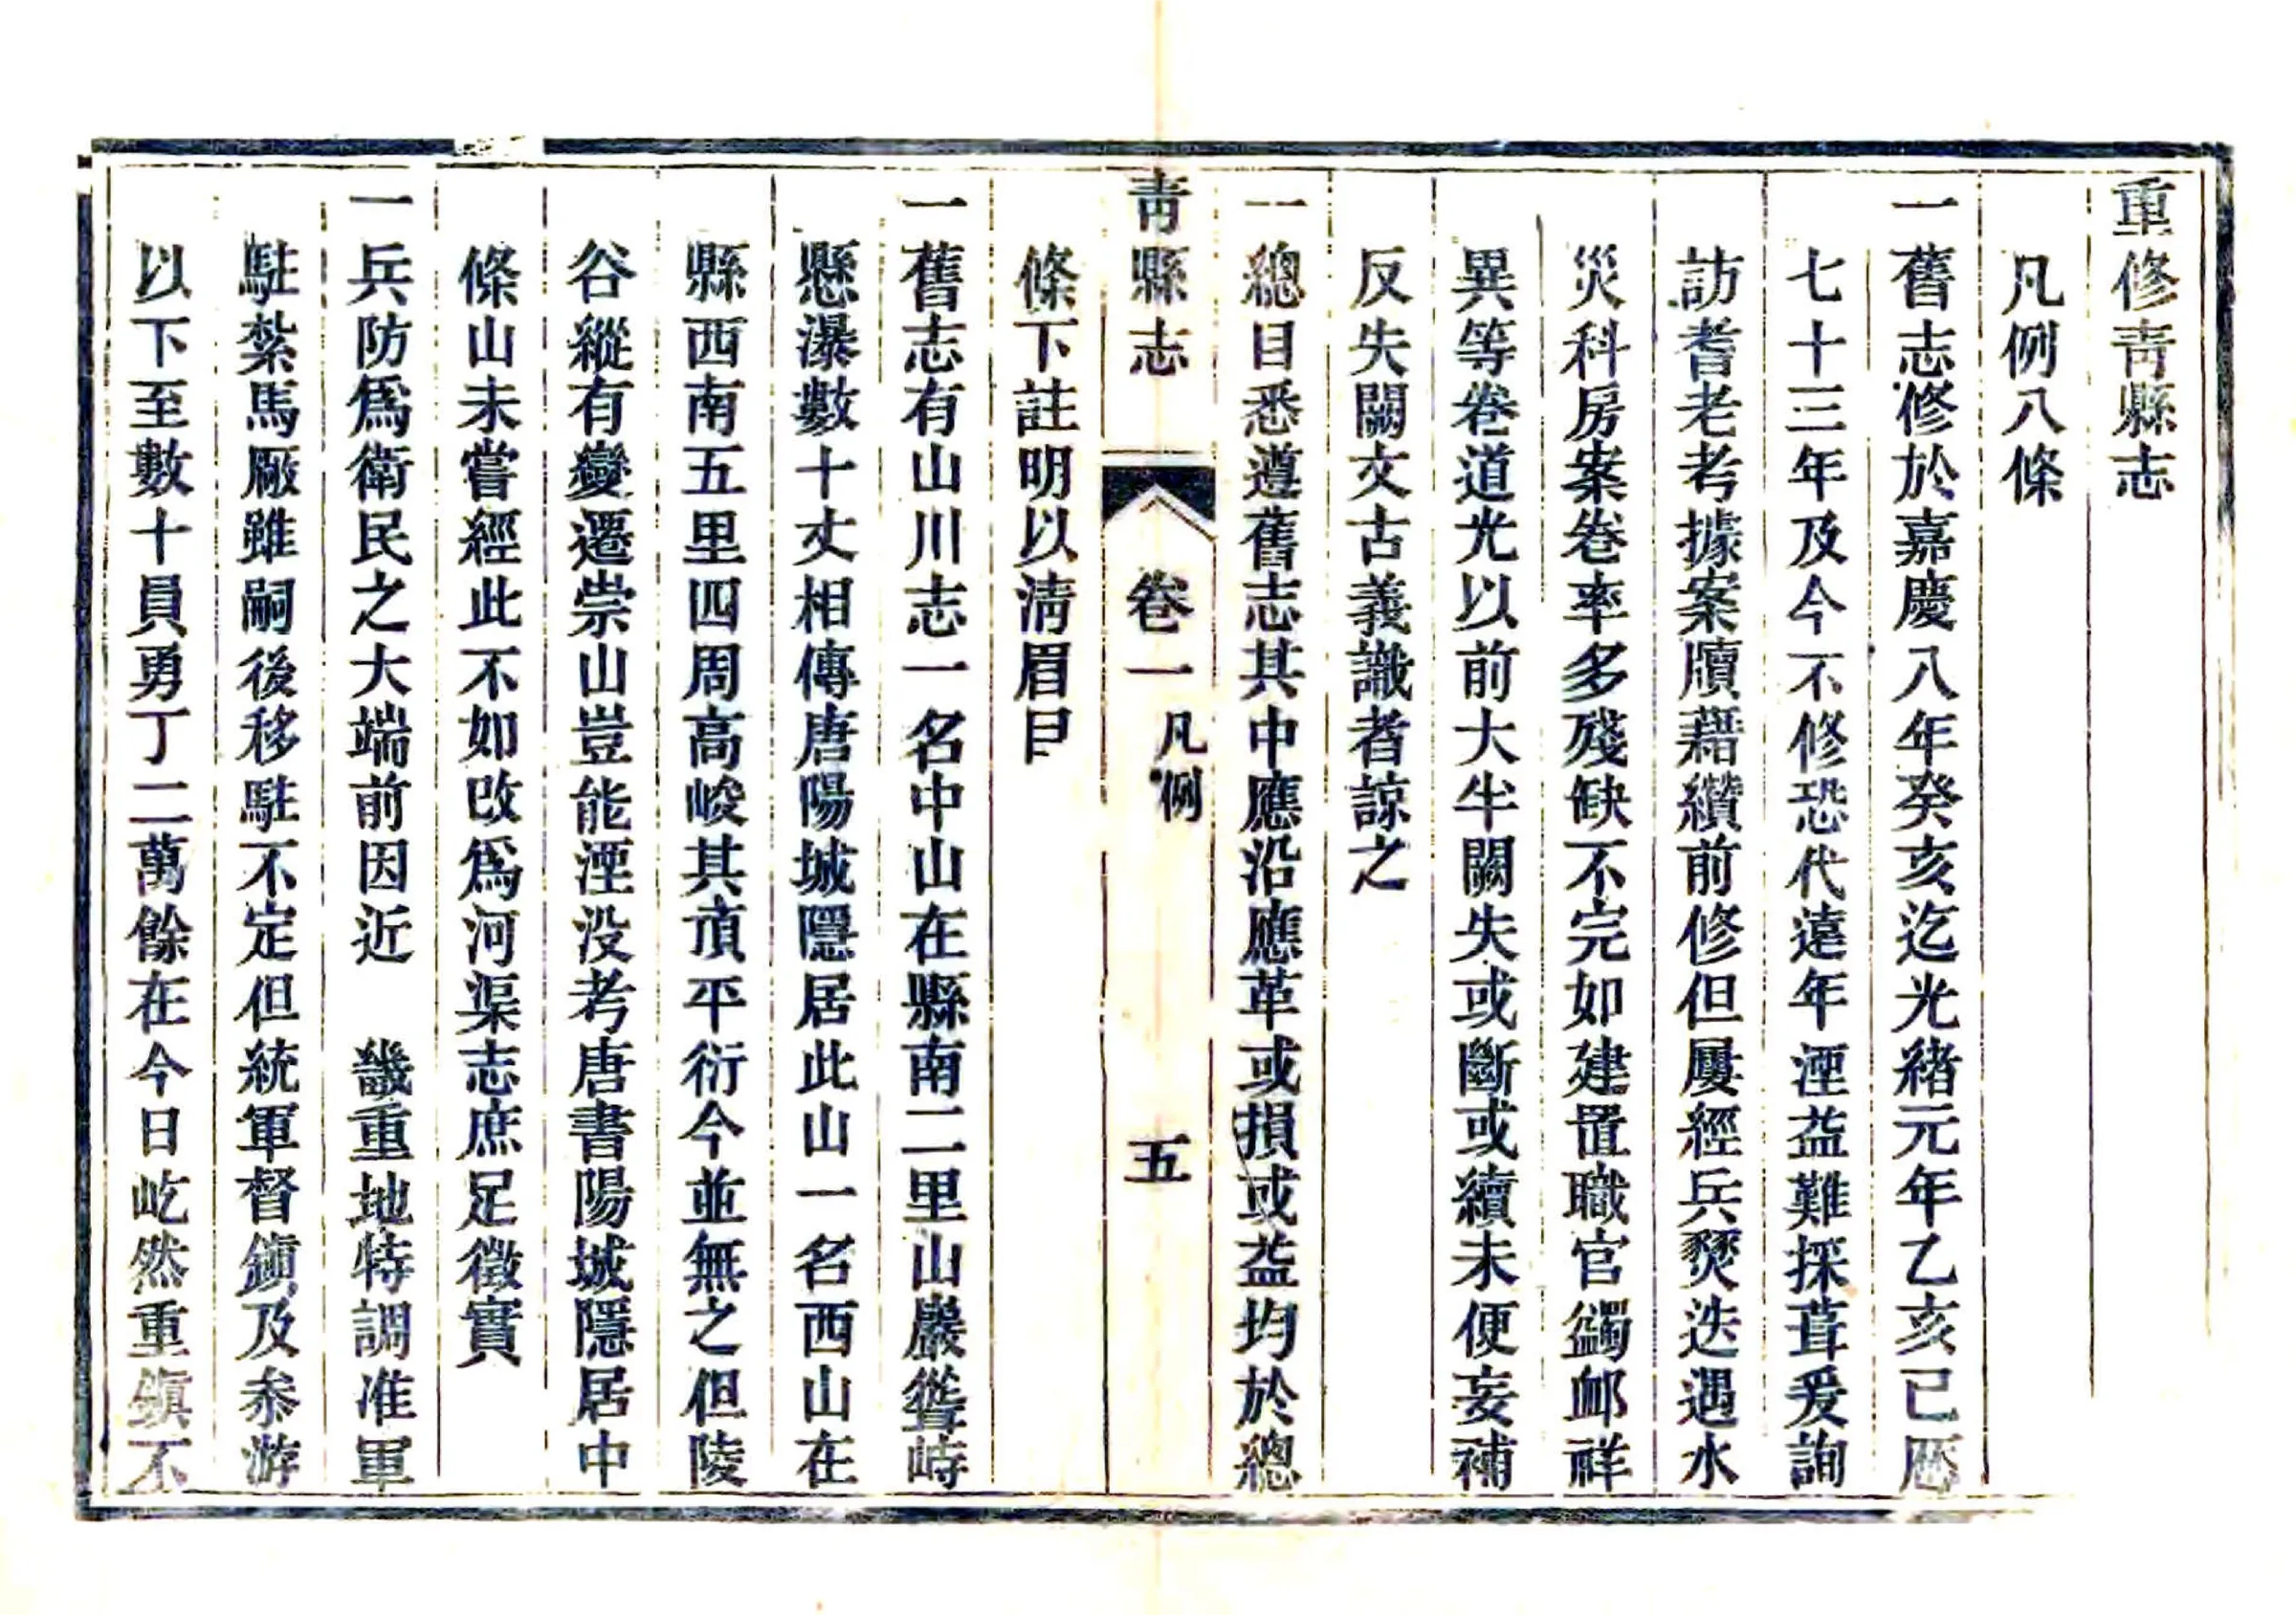 重修靑縣志
凡例八條
一舊志修於嘉慶八年癸亥迄光緒元年乙亥已歷
七十三年及今不修恐代遠年湮益難採葺爰詢
訪耆老考據案牘藉纘前修但屢經兵燹迭遇水
災科房案卷率多殘缺不完如建置職官蠲卹祥
異等卷道光以前大半闕失或斷或續未便妄補
反失闕文古義識者諒之
一總目悉遵舊志其中應沿應革或損或益均於總
靑縣志 卷一 凡例 五
條下註明以淸眉目
一舊志有山川志一名中山在縣南二里山巖聳峙
懸瀑數十丈相傳唐陽城隱居此山一名西山在
縣西南五里四周高峻其頂平衍今並無之但陵
谷縱有變遷崇山豈能湮没考唐書陽城隱居中
條山未嘗經此不如改爲河渠志庶足徵實
一兵防爲衛民之大端前因近 畿重地特調准軍
駐紮馬厰雖嗣後移駐不定但統軍督鎭及叅游
以下至數十員勇丁二萬餘在今日屹然重鎭不